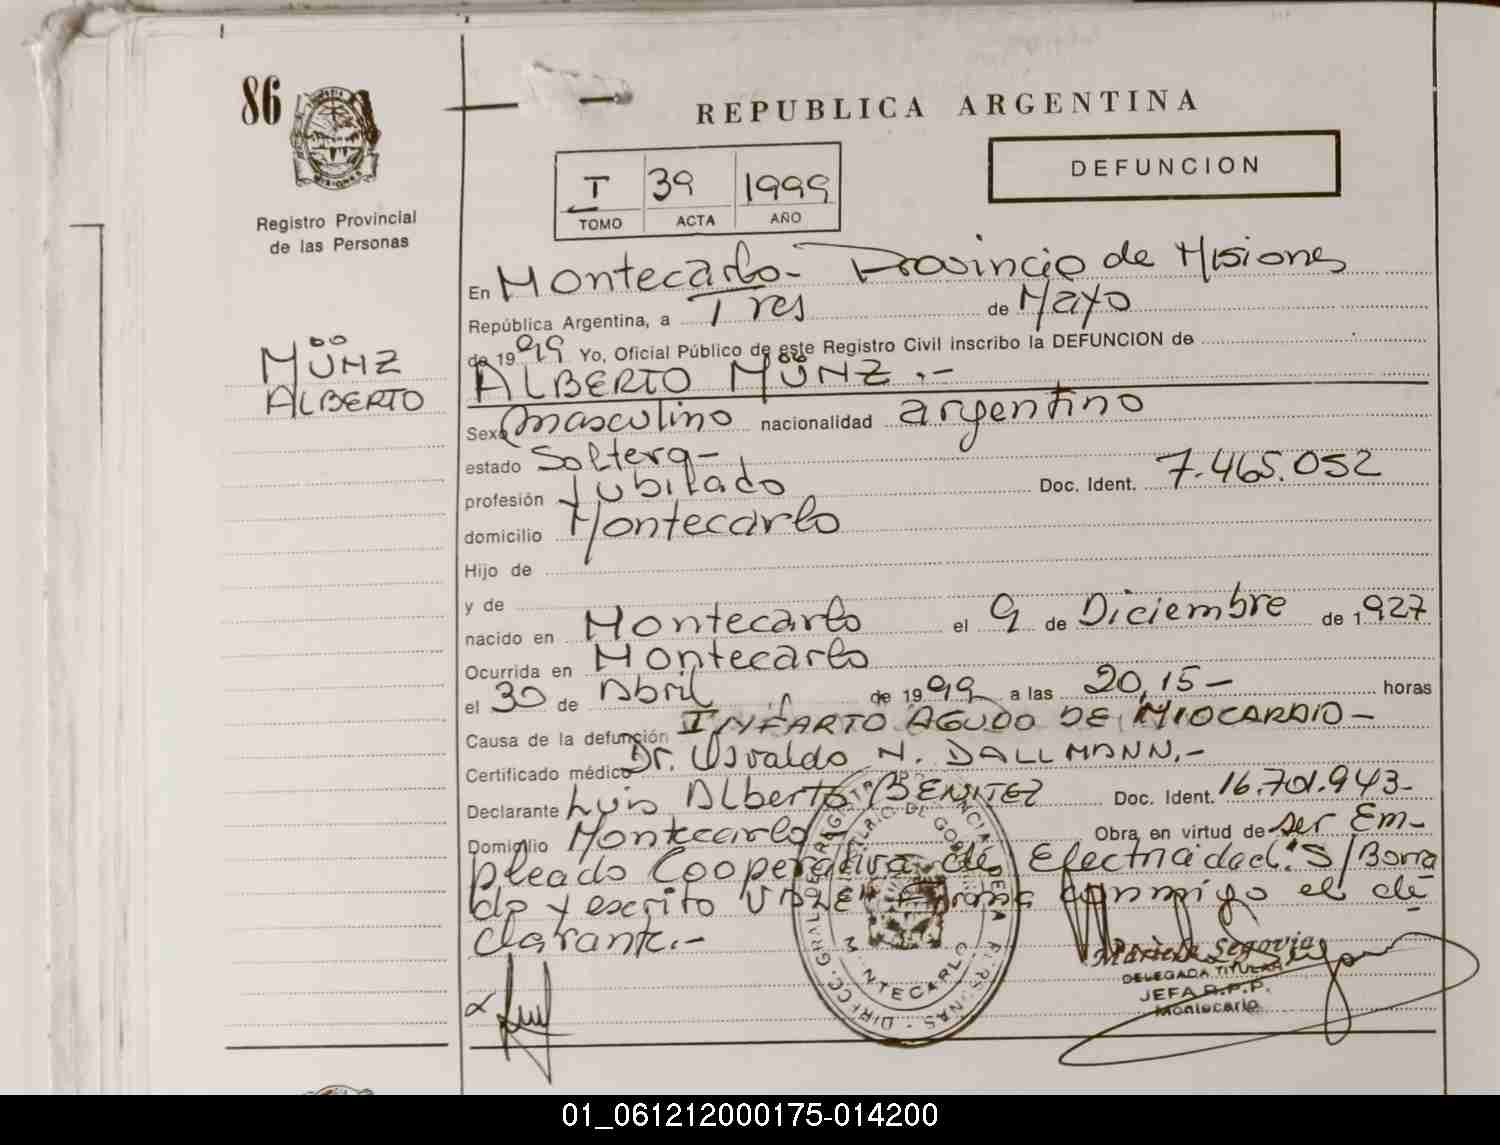 86
REPUBLICA ARGENTINA
DEFUNCION
I 39 1999
TOMO ACTA AÑO
Registro Provincial
de las Personas
MÜNZ
ALBERTO
En Montecarlo- Provincia de Misiones
República Argentina, a Tres de Mayo
de 1999 Yo, Oficial Público de este Registro Civil inscribo la DEFUNCION de
ALBERTO MÜNZ.-
Sexo masculino nacionalidad argentino
estado Soltero-
profesión Jubilado Doc. Ident. 7.465.052
domicilio Montecarlo
Hijo de
y de
nacido en Montecarlo el 9 de Diciembre de 1927
Ocurrida en Montecarlo
el 30 de Abril de 1999 a las 20,15- horas
Causa de la defunción INFARTO AGUDO DE MIOCARDIO-
Certificado médico Dr. Osvaldo N. DALLMANN.-
Declarante Luis Alberto BENITEZ Doc. Ident. 16.701.943-
Domicilio Montecarlo Obra en virtud de ser Em-
pleado Cooperativa de Electricidad. S/Borra
do y escrito VALE Firma conmigo el de
clarante.-
MONTECARLO
Mariela Segovia
DELEGADA TITULAR
JEFA R.P.P.
Montecarlo
01_061212000175-014200